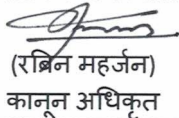 (रबिन महर्जन)
कानून अधिकृत